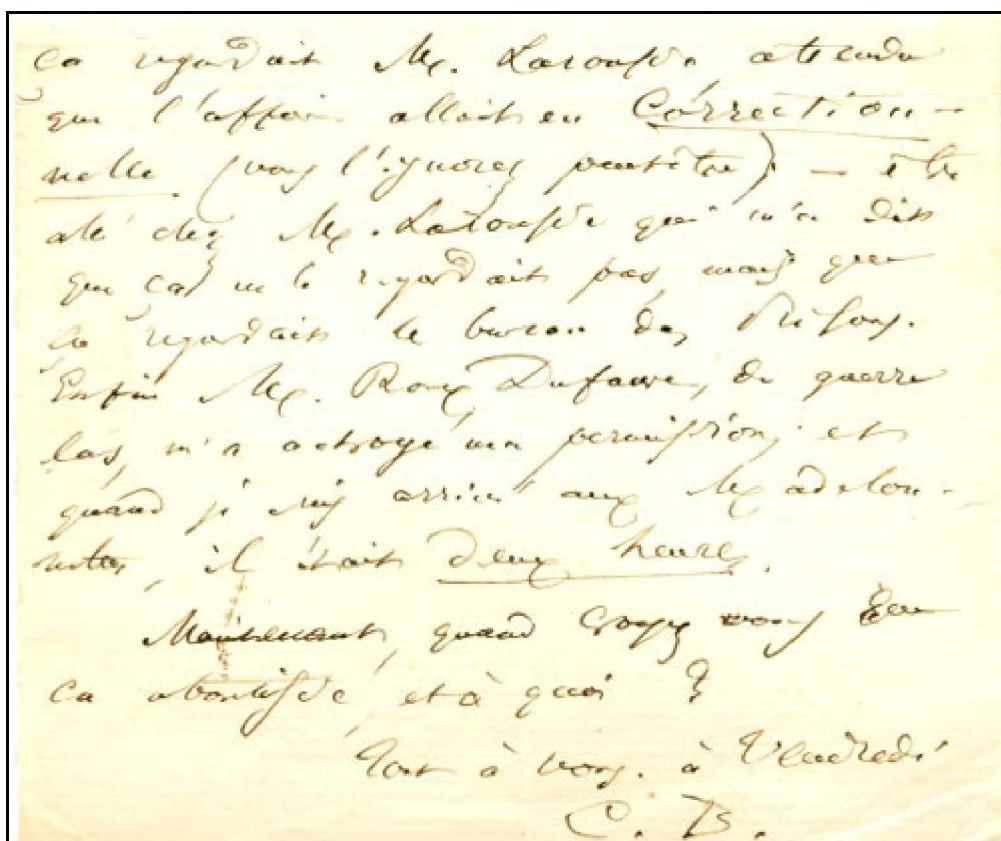 ça regardait M. Laroussie, attendu
que l'affaire allait en Correction-
nelle (vous l'ignorez peut-être) – été
allé chez M. Laroussie qui m'a dit
que ça ne le regardait pas, mais que
ça regardait le bureau des Prisons.
Enfin M. Roux Dufaure, de guerre
las, m'a octroyé ma permission; et
quand je suis arrivé aux Madelon-
nettes, il était deux heures.
Maintenant, quand croyez vous que
ça aboutisse, et à quoi ?
Tout à vous. à Vendredi
C. B.